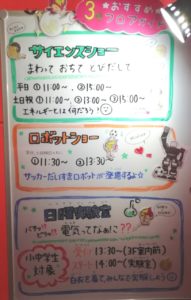 3
おすすめ
フロア
サイエンスショー
まわって おちて とびだして
平日 ①11:00~ ②15:00~
土日祝 ①11:00~ ②13:00~ ③15:00~
エネルギーとは何だろう!
ロボットショー
①11:30~ ②13:30~
サッカーだいすきロボットが登場するよ☆
日曜実験室
電気ってなぁに??
小中学生
対象
13:30~(3F室内前)
スタート 14:00~(実験室)
白衣を着て、みんなで実験しよう